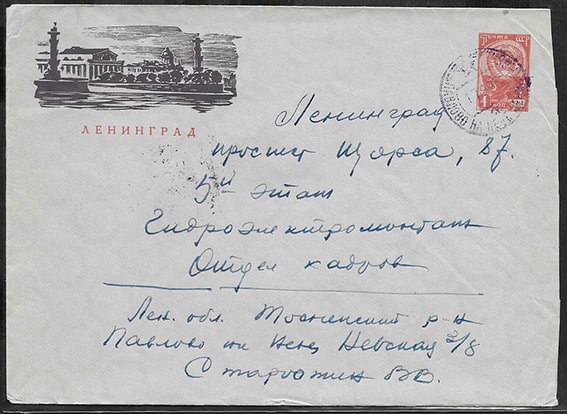 ПОЧТА СССР
4
ЛЕНИНГРАД
Ленинград
проспект Щорса, 87.
5й этаж
Гидроэлектромонтаж
Отдел кадров
Лен. обл. Тосненский р-н
Павлово на Неве, Невская 2/8
В.В.